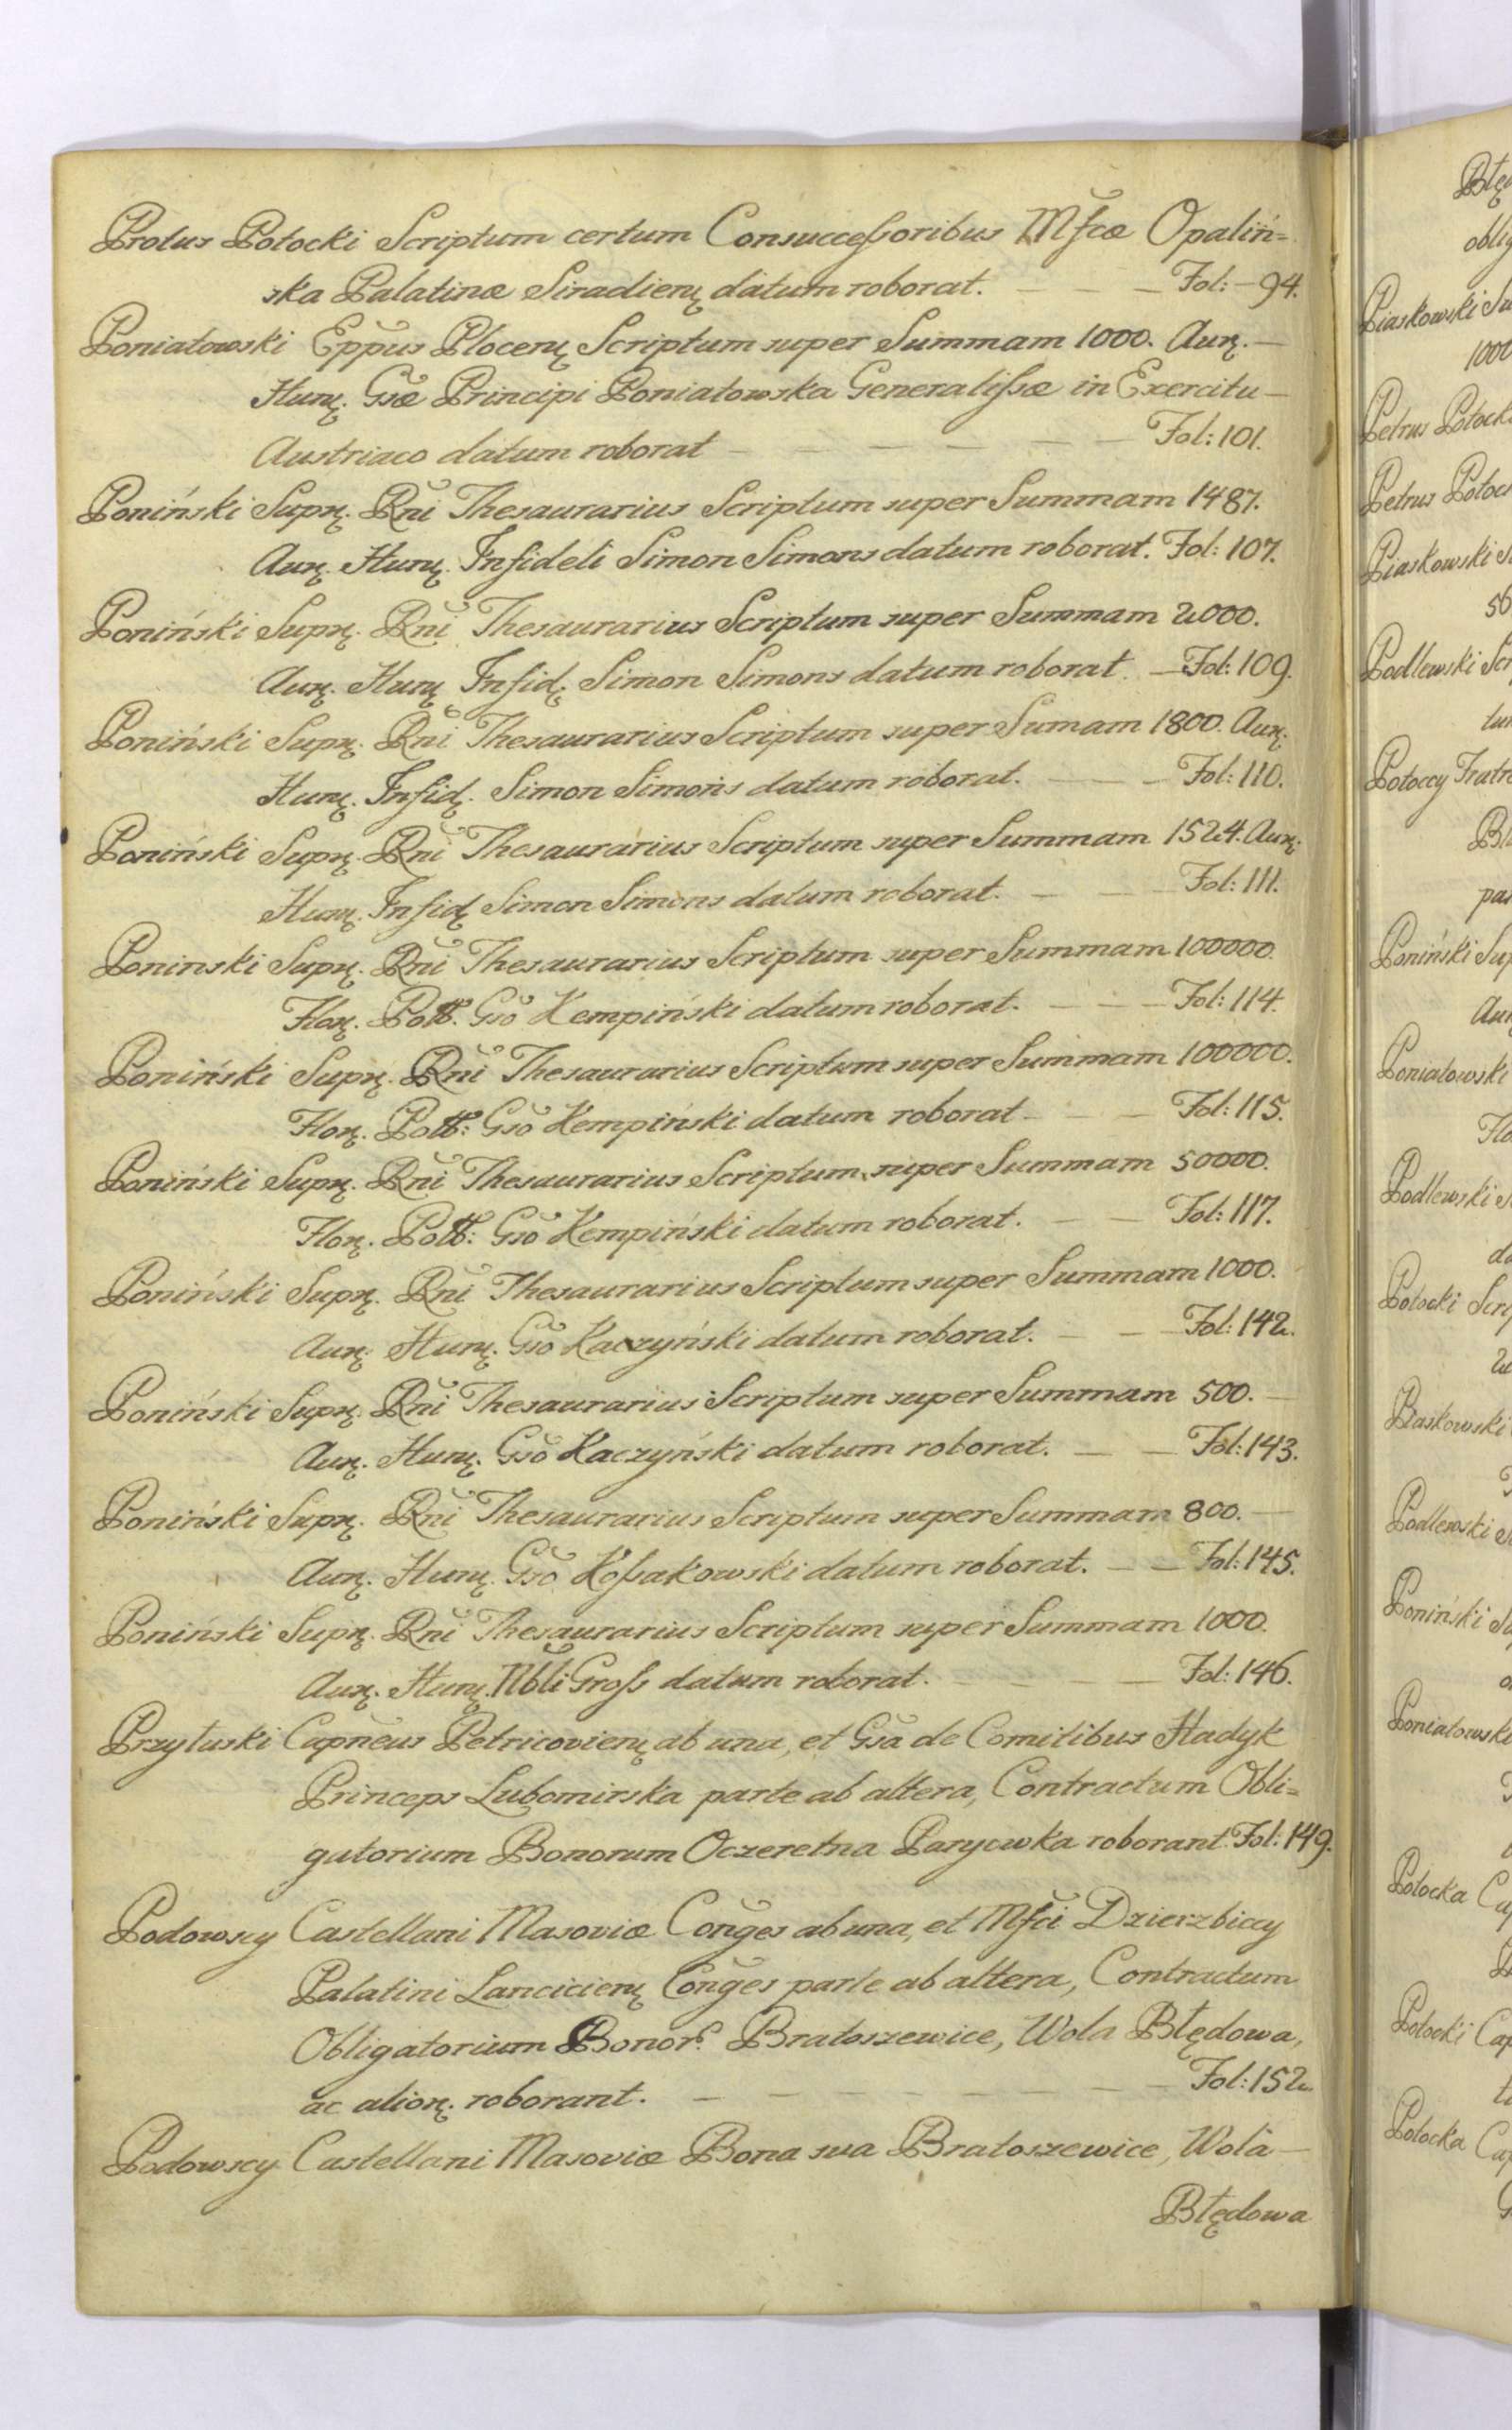 Protus Potocki Scriptum certum Consuccessoribus Mfcæ Opaliń=
ska Palatinæ Siradien. datum roborat. — — — Fol: 94.
Poniatowski Eppus Plocen. Scriptum super Summam 1000. Aur. —
Hun. Gsæ Principi Poniatowska Generalissæ in Exercitu —
Austriaco datum roborat — — — — Fol: 101.
Poniński Supr. Rni Thesaurarius Scriptum super Summam 1487.
Aur. Hun. Infideli Simon Simons datum roborat. Fol: 107.
Poniński Supr. Rni Thesaurarius Scriptum super Summam 2000.
Aur. Hun. Infid. Simon Simons datum roborat. — Fol: 109.
Poniński Supr. Rni Thesaurarius Scriptum super Sumam 1800. Aur.
Hun. Infid. Simon Simons datum roborat. — — — Fol: 110.
Poniński Supr. Rni Thesaurarius Scriptum super Summam 1524. Aur.
Hun. Infid. Simon Simons datum roborat. — — Fol: 111.
Poninski Supr. Rni Thesaurarius Scriptum super Summam 100000.
Flor. Poll. Gso Kempiński datum roborat. — — — Fol: 114.
Poniński Supr. Rni Thesaurarius Scriptum super Summam 100000.
Flor. Poll: Gso Kempiński datum roborat — — — Fol: 115.
Poniński Supr. Rni Thesaurarius Scriptum super Summam 50000.
Flor. Poll: Gso Kempiński datum roborat. — — Fol: 117.
Poniński Supr. Rni Thesaurarius Scriptum super Summam 1000.
Aur. Hun. Gso Kaczyński datum roborat. — — Fol: 142.
Poniński Supr. Rni Thesaurarius Scriptum super Summam 500. —
Aur. Hun. Gso Kaczyński datum roborat. — — Fol: 143.
Poniński Supr. Rni Thesaurarius Scriptum super Summam 800. —
Aur. Hun. Gso Kossakowski datum roborat. — — Fol: 145.
Poniński Supr. Rni Thesaurarius Scriptum super Summam 1000.
Aur. Hun. Nbli Gross datum roborat. — — — Fol: 146.
Przyłuski Capneus Petricovien. ab una, et Gsa de Comitibus Hadyk
Princeps Lubomirska parte ab altera, Contractum Obli=
gatorium Bonorum Oczeretna Parycwka roborant. Fol: 149.
Podowscy Castellani Masoviæ Conges ab una, et Mfci Dzierzbiccy
Palatini Lancicien. Conges parte ab altera, Contractum
Obligatorium Bonor. Bratoszewice, Wola Błędowa,
ac alior. roborant. — — — — — — Fol: 152.
Podowscy Castellani Masoviæ Bona sua Bratoszewice, Wola —
Błędowa
Piaskowski
1000
Petrus Potock
Petrus Potoc
Piaskowski
56
Podlewski Scr
Potoccy Fratr
Poniński Sup
Poniatowski
Podlewski
Potocki Scri
Piaskowski
Podlewski
Poniński
Poniatowski
Potocka Ca
Potocki Cap
Potocka Cap